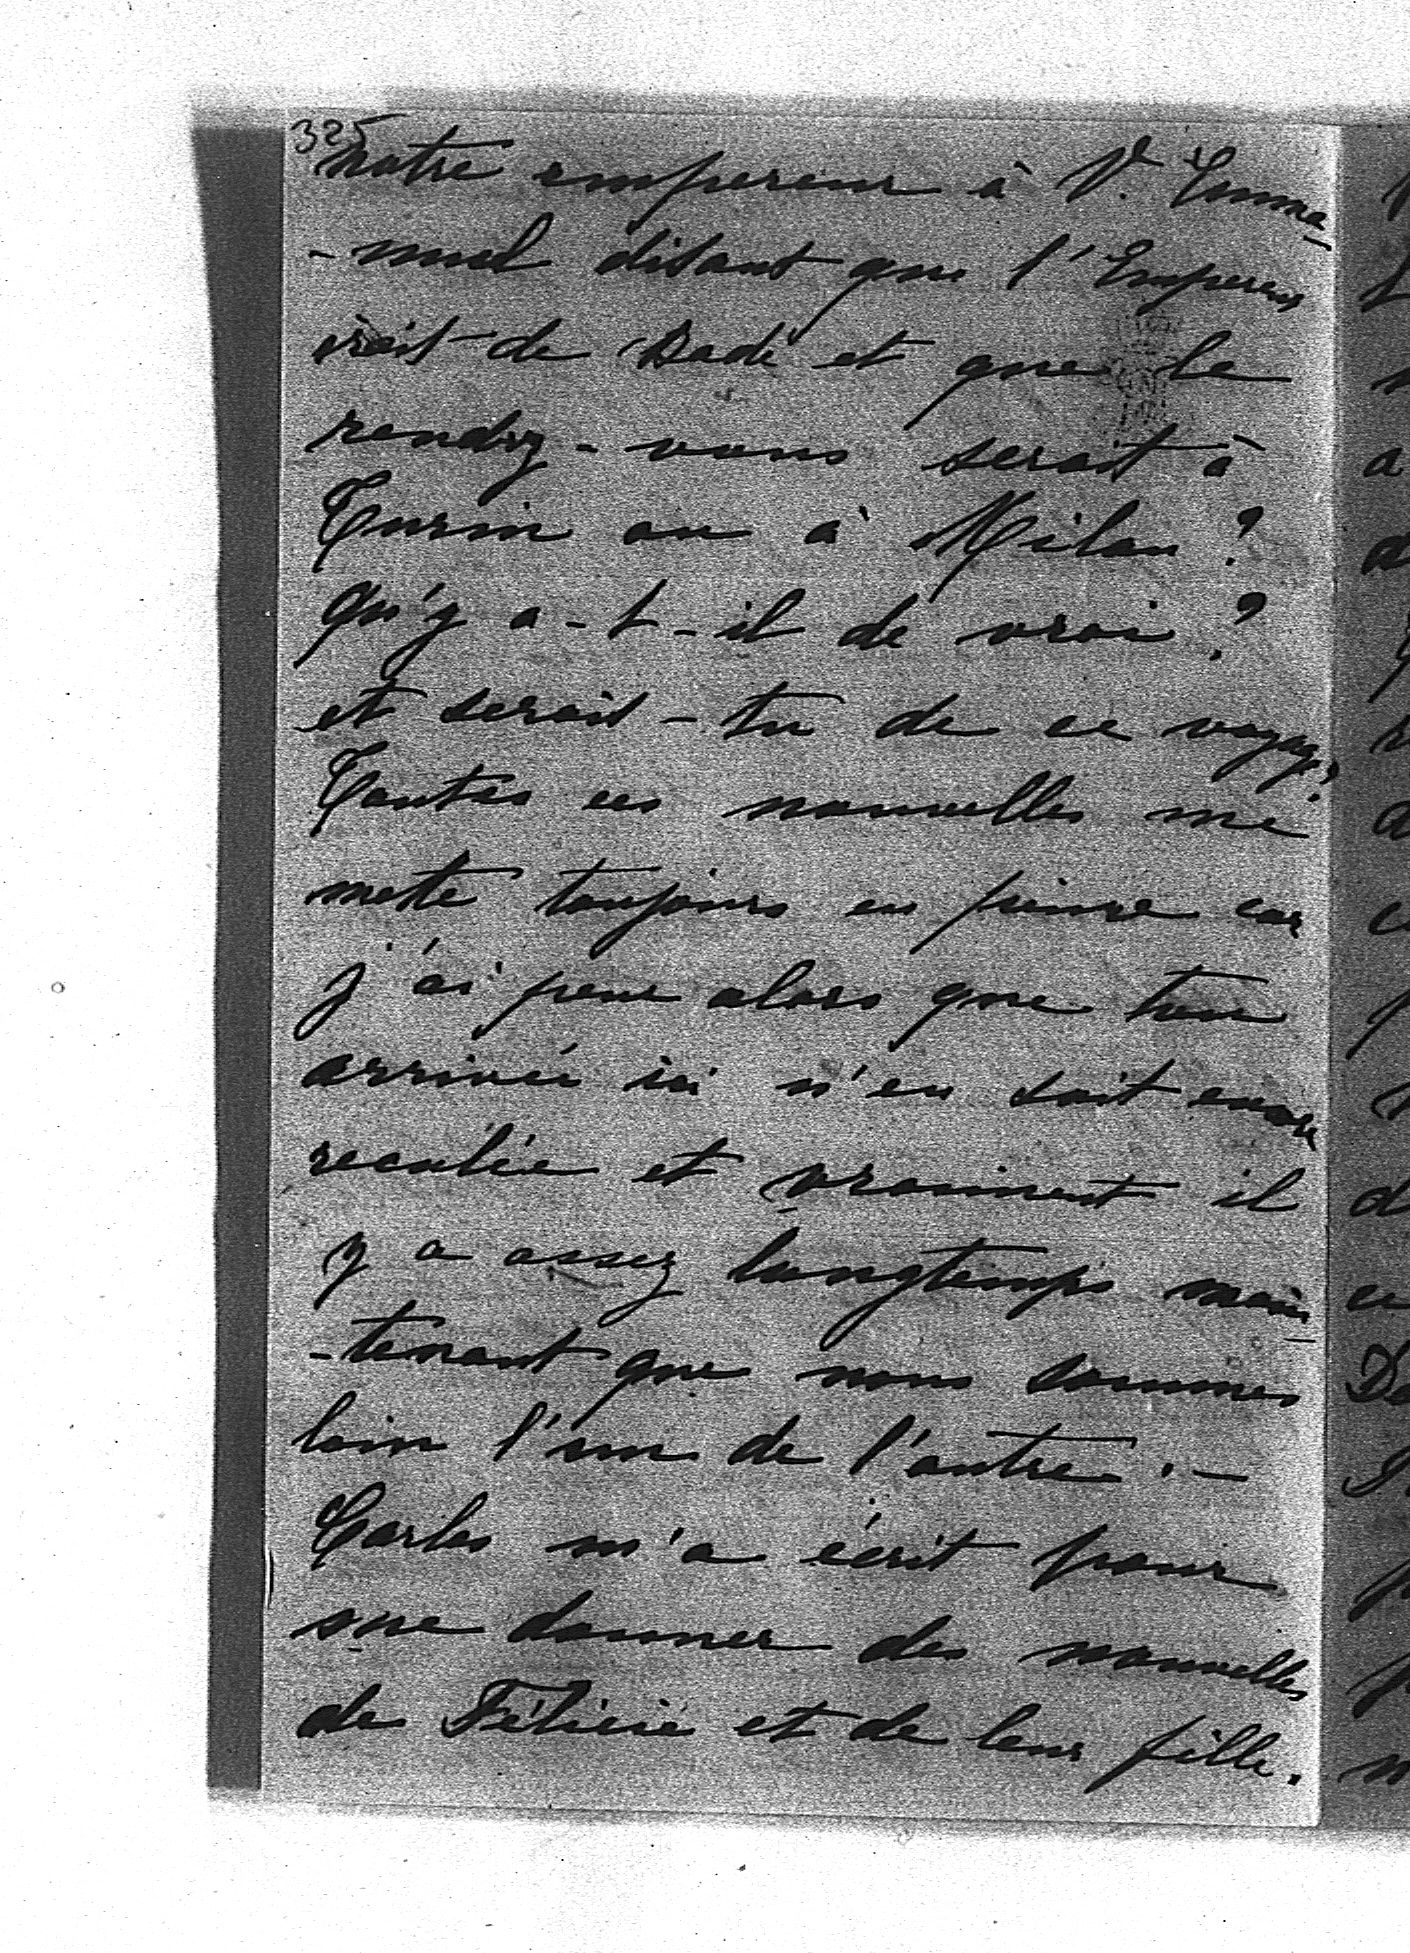 325
notre empereur à V. Emma
- nuel disant que l'Empereur
irait de Bade et que le
rendez-vous serait à
Turin ou à Milan ?
qu'y a-t-il de vrai ?
et serais-tu de ce voyage?
Toutes ces nouvelles me
mette toujours en peine car
j'ai peur alors que ton
arrivée ici n'en soit encore
reculée et vraiment il
y a assez longtemps main
-tenant que nous sommes
loin l'un de l'autre. —
Carlos m'a écrit pour
me donner des nouvelles
de Félicie et de leur fille.